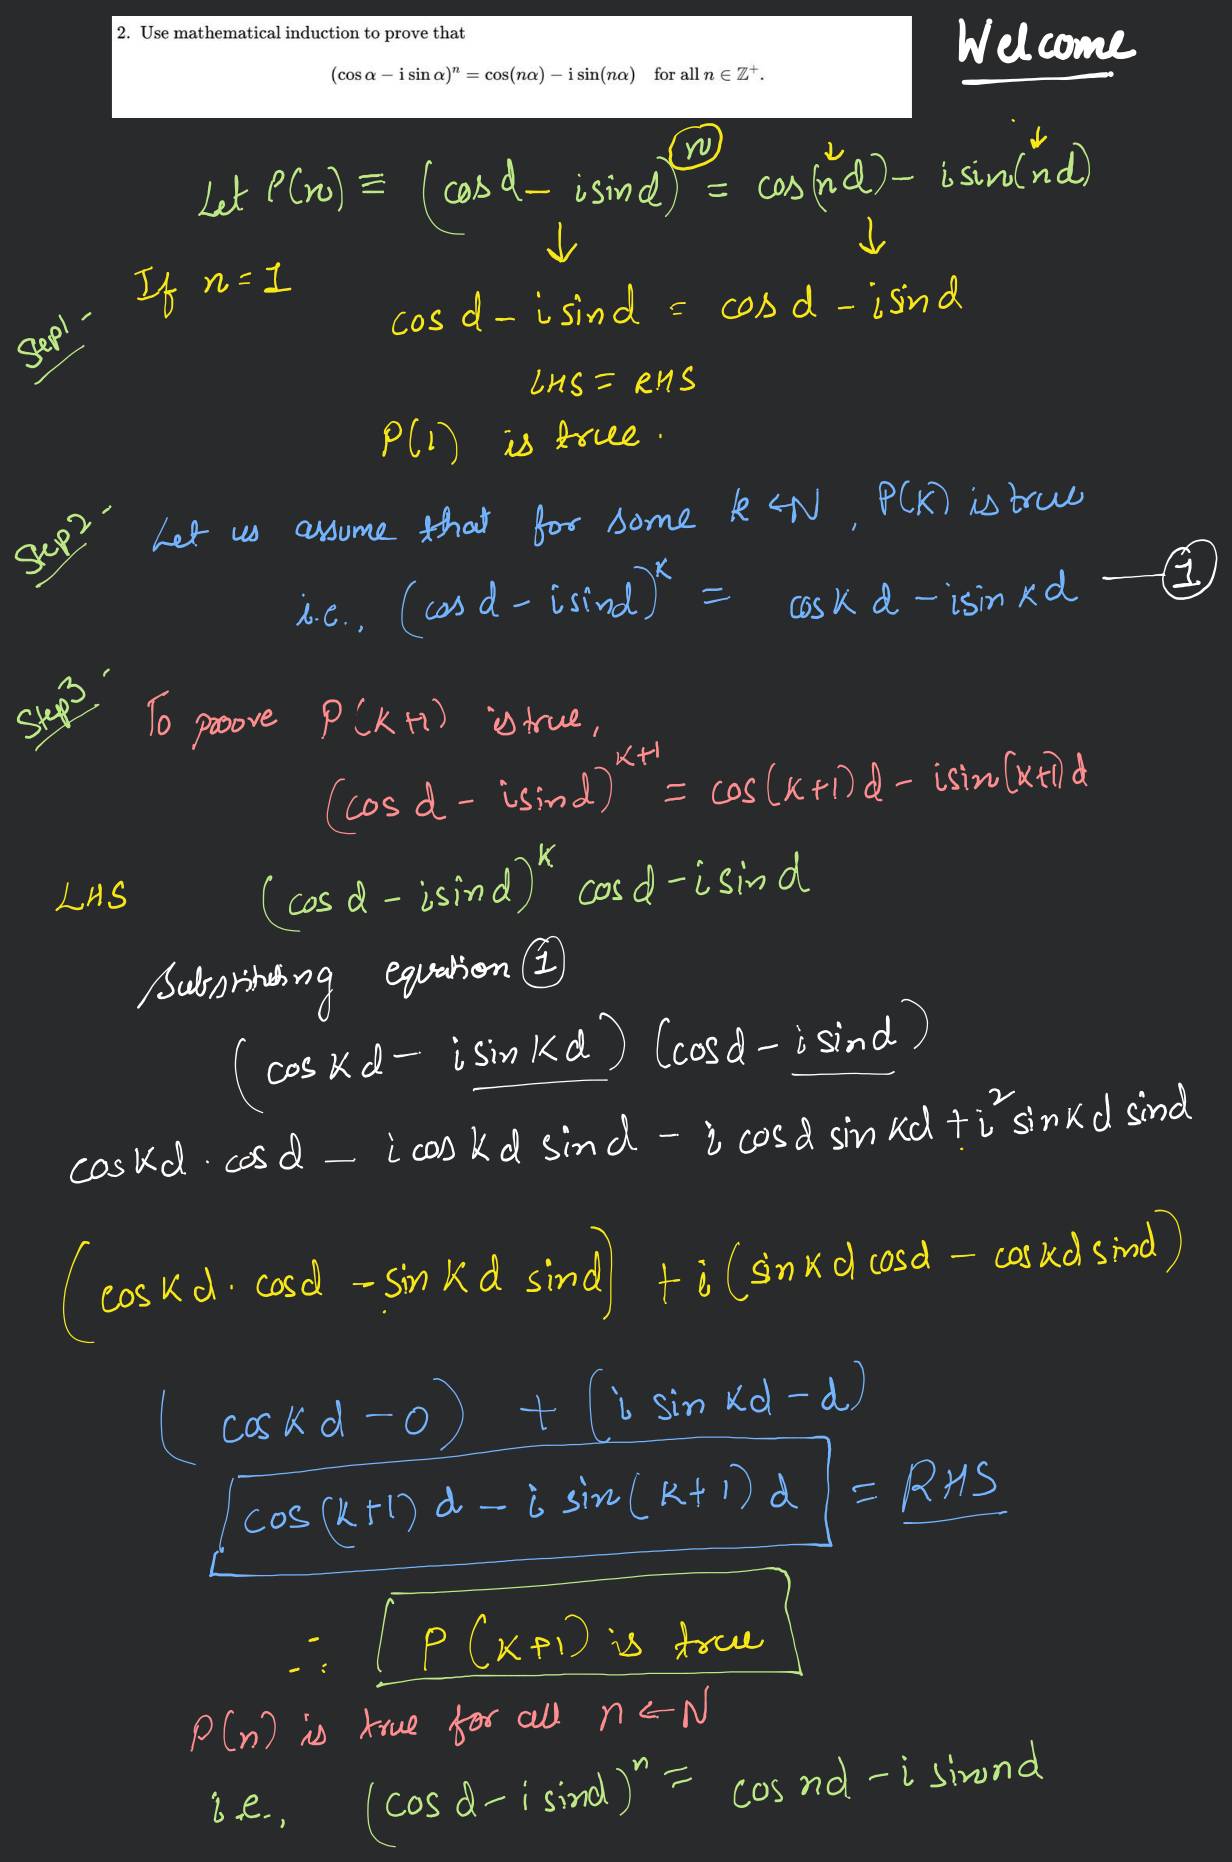 2. Use mathematical induction to prove that
(cos α − i sin α)ⁿ = cos(nα) − i sin(nα) for all n ∈ ℤ⁺.
Welcome
Let P(n) ≡ (cos d − i sin d)ⁿ = cos(nd) − i sin(nd)
Step1 -
If n = 1
cos d − i sin d = cos d − i sin d
LHS = RHS
P(1) is true.
Step2 -
Let us assume that for some k ∈ N, P(K) is true
i.e., (cos d − i sin d)ᴷ = cos K d − i sin K d — ①
Step3 -
To proove P(K+1) is true,
(cos d − i sin d)ᴷ⁺¹ = cos(K+1)d − i sin(K+1)d
LHS (cos d − i sin d)ᴷ cos d − i sin d
Substituting equation ①
(cos K d − i sin K d) (cos d − i sin d)
cos K d . cos d − i cos K d sin d − i cos d sin K d + i² sin K d sin d
(cos K d . cos d − sin K d sin d) + i (sin K d cos d − cos K d sin d)
(cos K d − 0) + (i sin K d − d)
cos(K+1) d − i sin(K+1) d = RHS
∴ P(K+1) is true
P(n) is true for all n ∈ N
i.e., (cos d − i sin d)ⁿ = cos nd − i sin nd